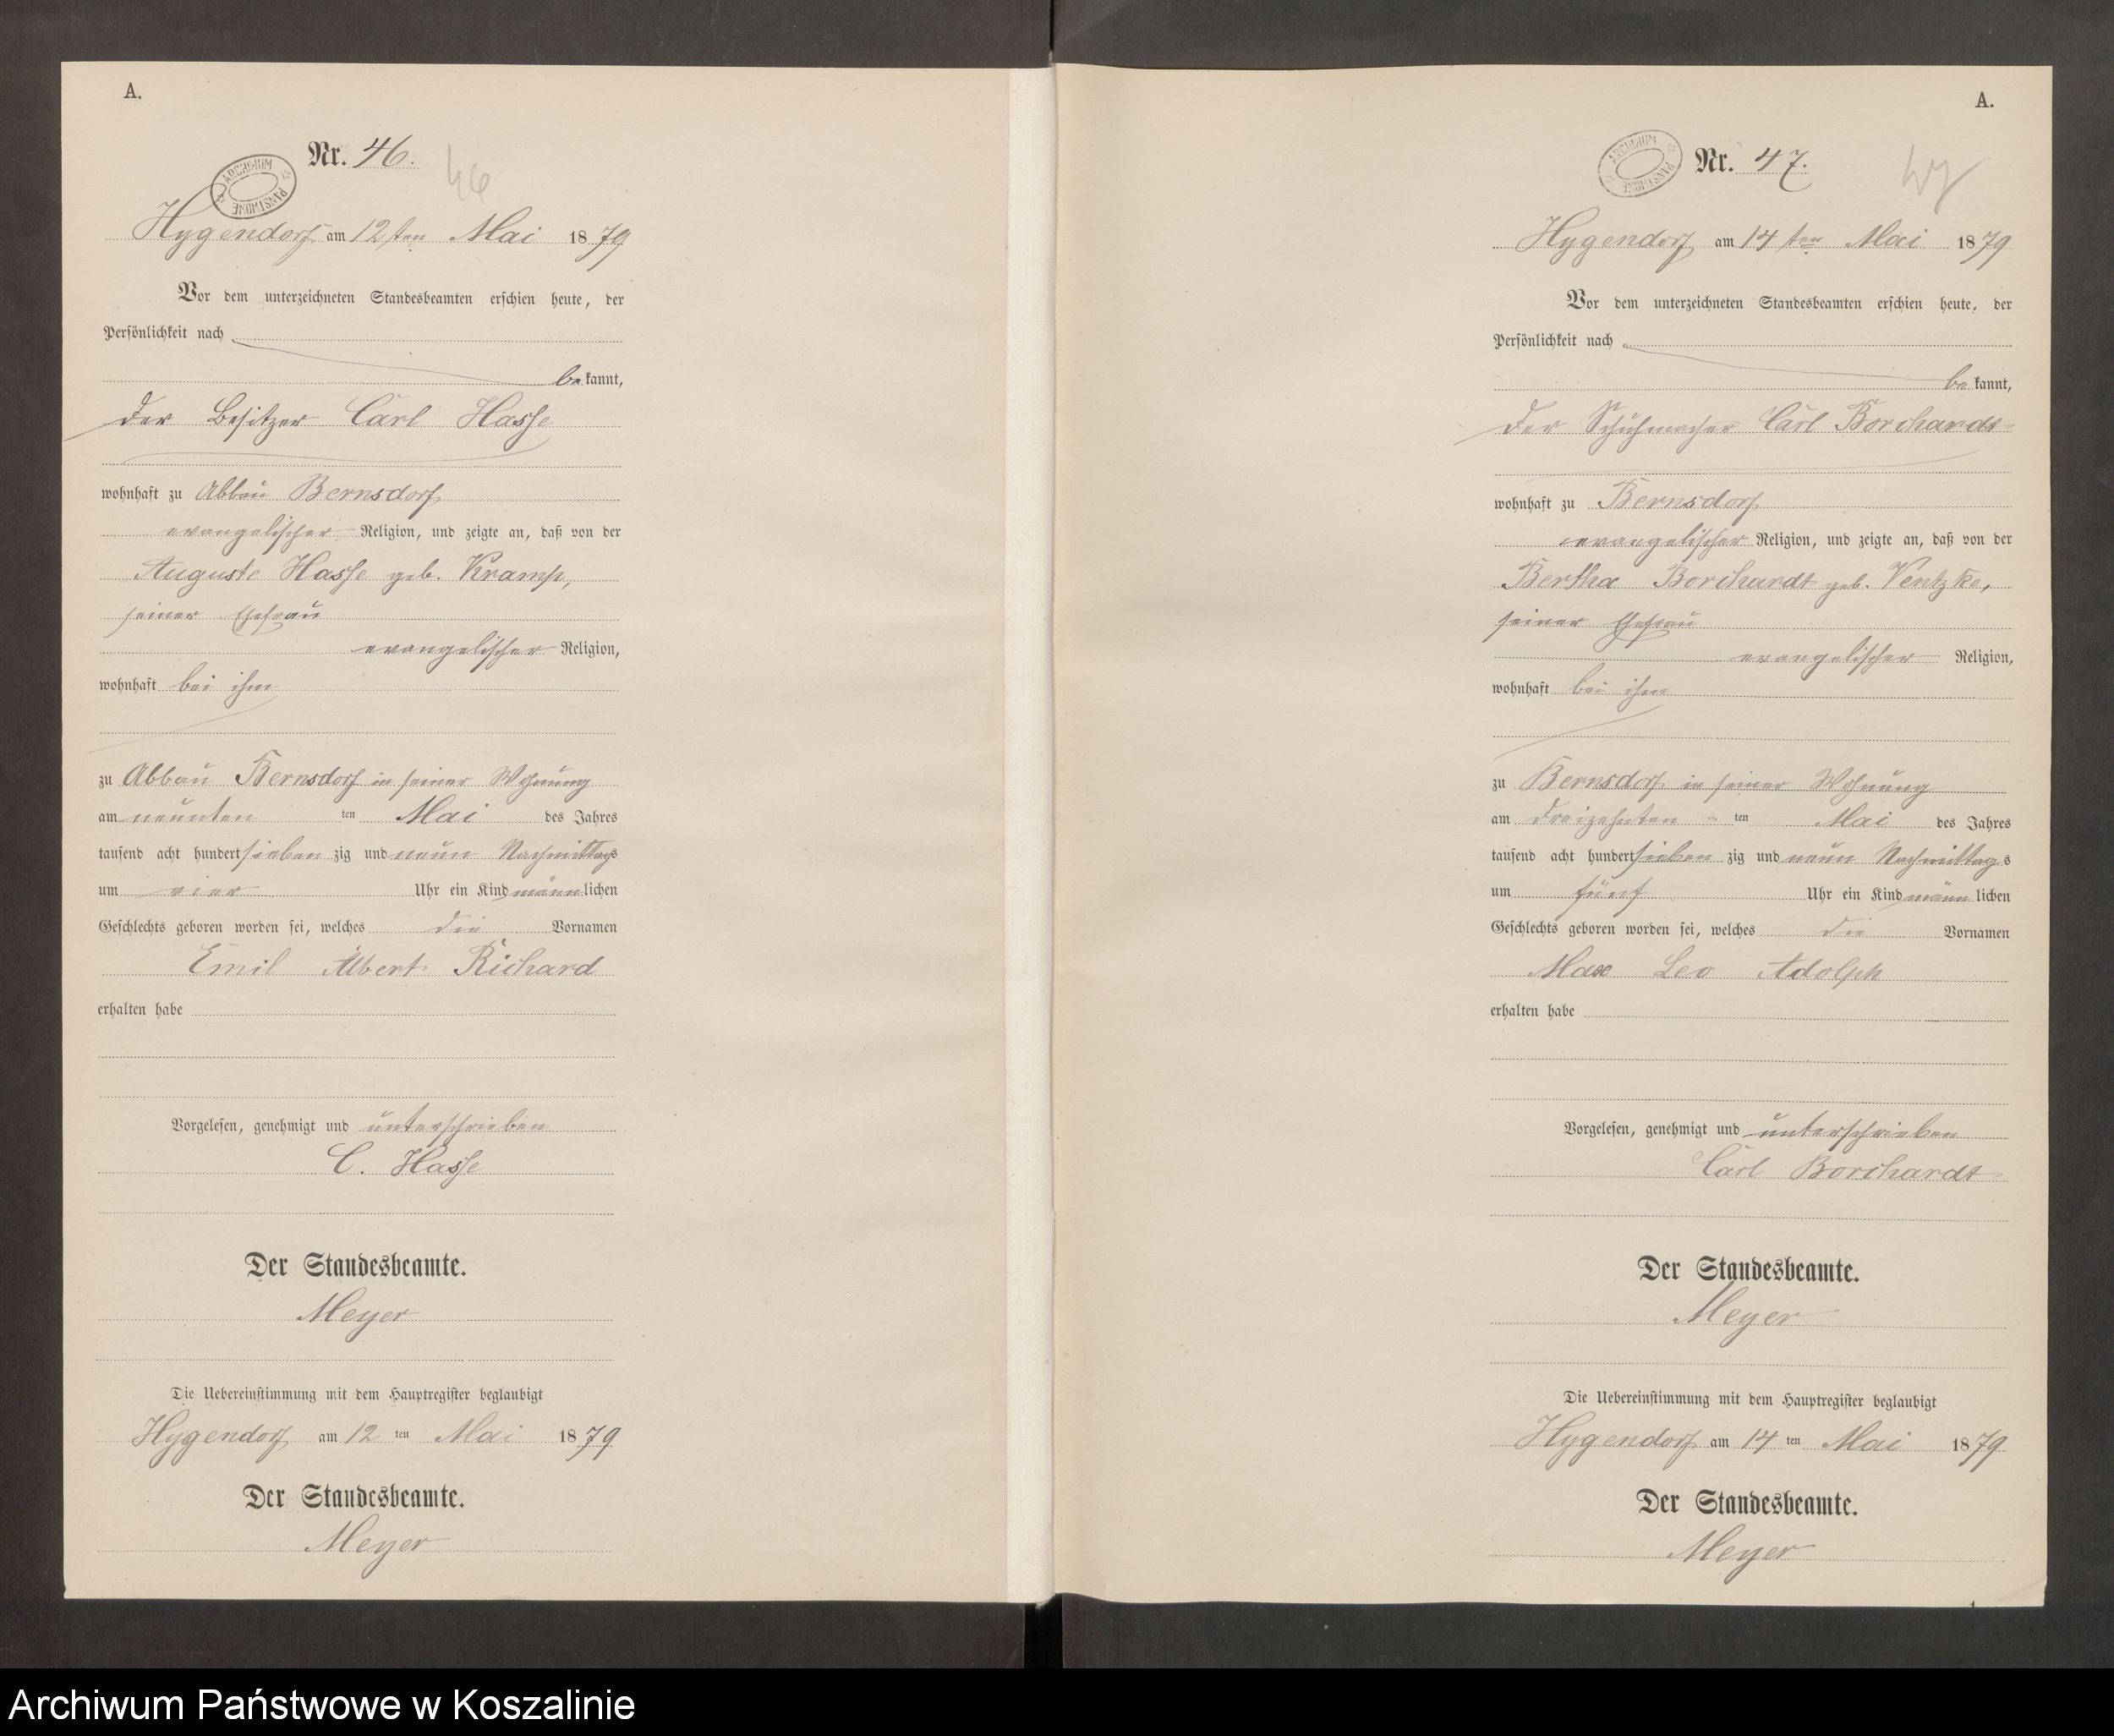 A.
Nr. 46.
46
ARCHIWUM PAŃSTWOWE
Hygendorf am 12 ten Mai 1879
Vor dem unterzeichneten Standesbeamten erschien heute, der
Persönlichkeit nach
bekannt,
der Besitzer Carl Hasse
wohnhaft zu Abbau Bernsdorf
evangelischer Religion, und zeigte an, daß von der
Auguste Hasse geb. Kramp,
seiner Ehefrau
evangelischer Religion,
wohnhaft bei ihm
zu Abbau Bernsdorf in seiner Wohnung
am neunten ten Mai des Jahres
tausend acht hundert sieben zig und neun Nachmittags
um vier Uhr ein Kind männlichen
Geschlechts geboren worden sei, welches die Vornamen
Emil Albert Richard
erhalten habe
Vorgelesen, genehmigt und unterschrieben
C. Hasse
Der Standesbeamte.
Meyer
Die Uebereinstimmung mit dem Hauptregister beglaubigt
Hygendorf am 12 ten Mai 1879
Der Standesbeamte.
Meyer
A.
Nr. 47.
47
ARCHIWUM PAŃSTWOWE
Hygendorf am 14 ten Mai 1879
Vor dem unterzeichneten Standesbeamten erschien heute, der
Persönlichkeit nach
bekannt,
der Schuhmacher Carl Borchardt
wohnhaft zu Bernsdorf
evangelischer Religion, und zeigte an, daß von der
Bertha Borchardt geb. Ventzke,
seiner Ehefrau
evangelischer Religion,
wohnhaft bei ihm
zu Bernsdorf in seiner Wohnung
am dreizehnten ten Mai des Jahres
tausend acht hundert sieben zig und neun Nachmittags
um fünf Uhr ein Kind männlichen
Geschlechts geboren worden sei, welches die Vornamen
Max Leo Adolph
erhalten habe
Vorgelesen, genehmigt und unterschrieben
Carl Borchardt
Der Standesbeamte.
Meyer
Die Uebereinstimmung mit dem Hauptregister beglaubigt
Hygendorf am 14 ten Mai 1879
Der Standesbeamte.
Meyer
Archiwum Państwowe w Koszalinie